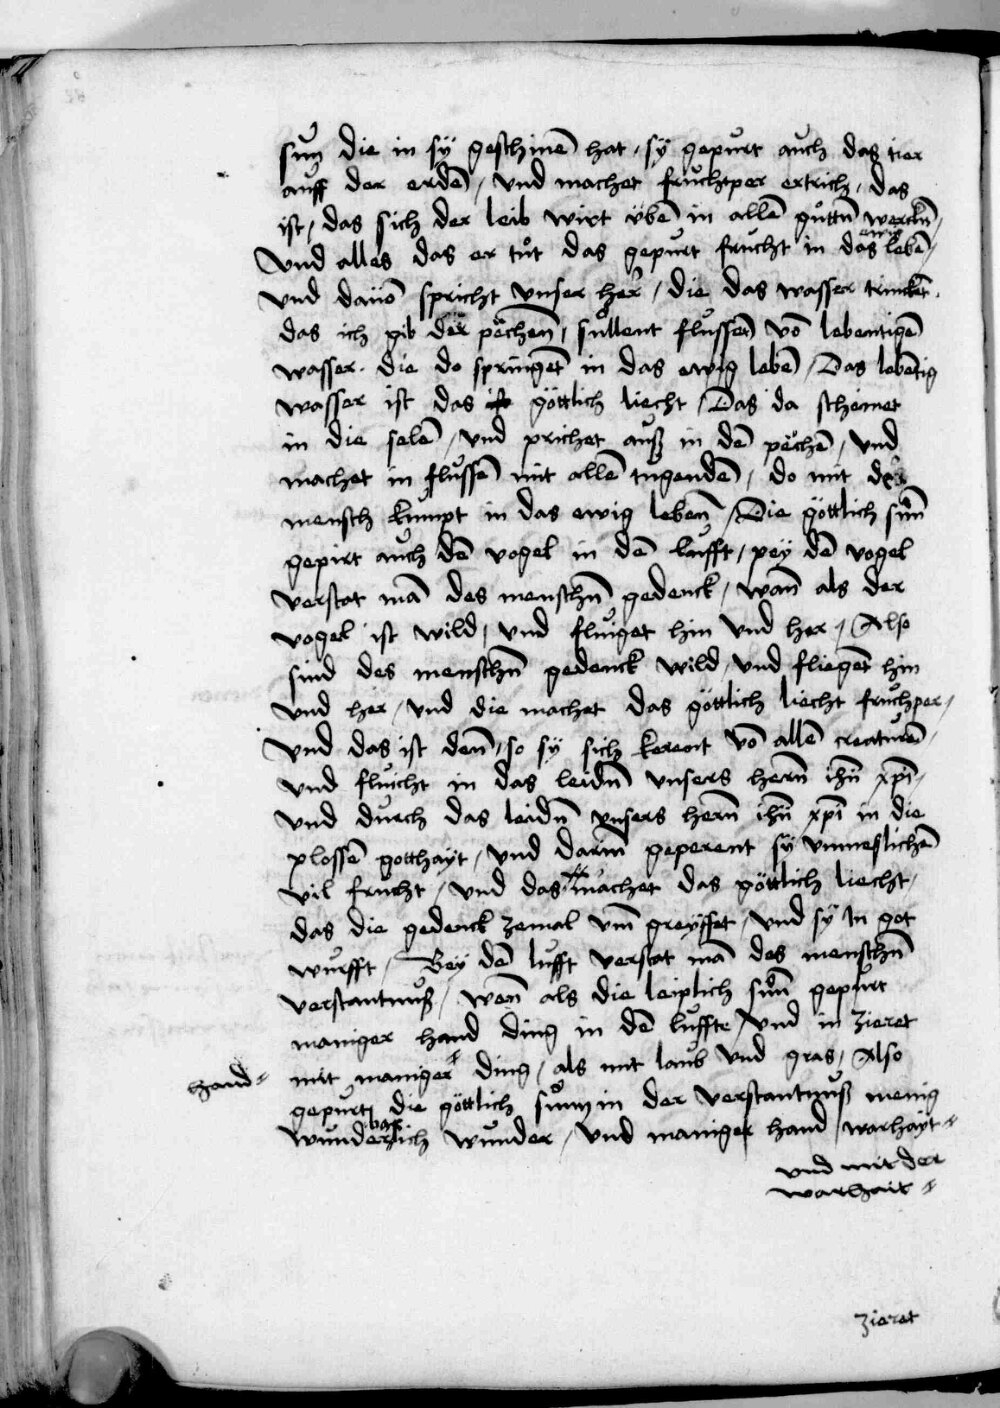 sun die in sÿ geschinē hat, sÿ gepurt auch das tier
auff der erdē, vnd machet fruchtper ertrich, das
ist, das sich der leib wirt übē in allē gůttn̄ werckn̄,
Vnd alles das er tůt das gepurt frucht in das ewig lebē,
vnd dauō spricht vnser her̄, die das wasser trincket,
das ich gib der pechen̄, süllent flussen̄ vō lebentigē
wasser. die do springet̄ in das ewig lebē, Das lebētig
wasser ist das ist göttlich liecht, Das da scheinet
in die selē, vnd prichet auß in dē pechē, vnd
machet in flussē mit allē tugendē, do mit der
mensch kumpt in das ewig leben̄, Die göttlich sun̄
gepirt auch dē vogel in dē lufft, peÿ dē vogel
verstat mā des menschn̄ gedenck, wan̄ als der
vogel ist wild, vnd fluiget hin vnd her, Also
sind des menschn̄ gedenck wild, vnd fliegēt hin
vnd her, vnd die machet das göttlich liecht fruchper,
Vnd das ist den̄, so sÿ sich kerent vō allē creaturē,
vnd fluicht in das leidn̄ vnsers hern̄ ihū xpī,
vnd durch das leidn̄ vnsers hern̄ ihū xpī in die
plossē gotthaÿt, vnd darin̄ geperent sÿ vnmeslichē
vil frucht, vnd das machet das göttlich liecht,
das die gedenck zemal vm̄ greÿffet, vnd sÿ in got
wurfft, Beÿ dē lufft verstat mā des menschn̄
verstantnuß, wen̄ als die leiplich sun̄ gepurt
maniger hand ding in dē luffte, vnd in zieret
mit maniger ding, als mit laub vnd gras, Also
hand
gepurt die göttlich sunn in der verstantnuß menig
wunderbarlich wunder, vnd maniger hand warhaÿt
vnd mit der
warhait
zieret